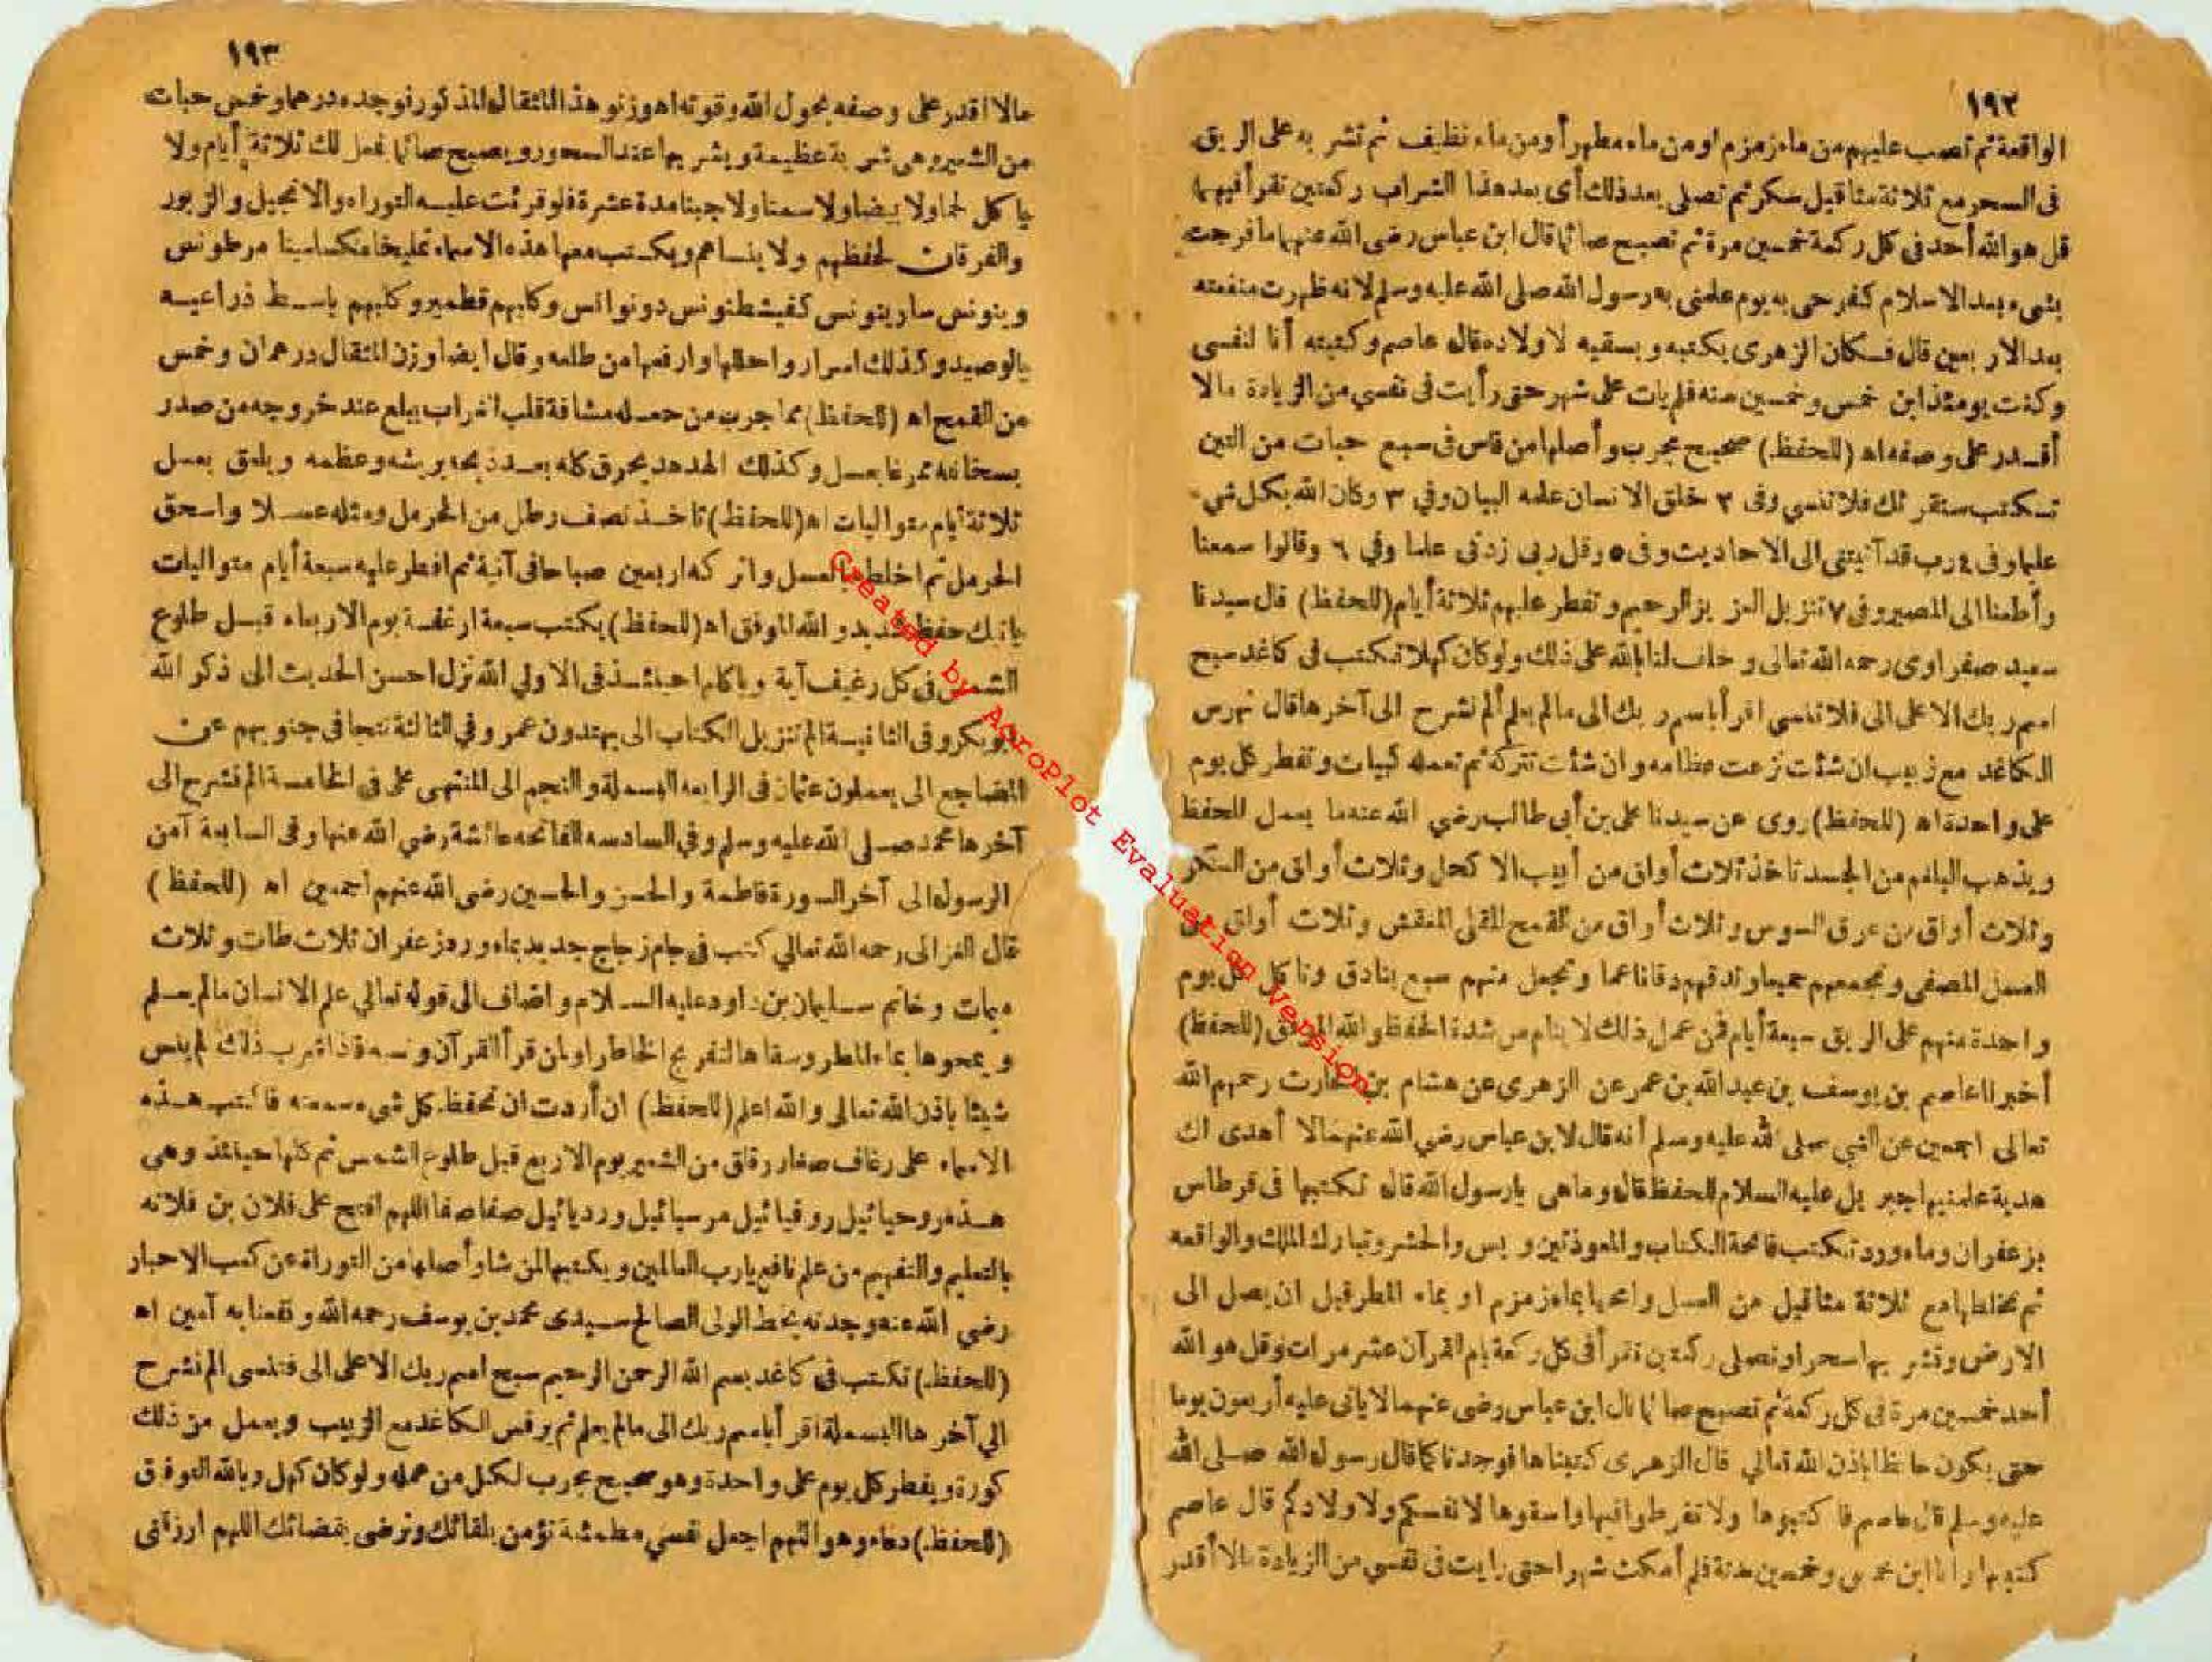 ١٩٢
الواقعة ثم تصب عليهم من ماء زمزم او من ماء مطر أو من ماء نظيف ثم تشربه على الريق
فى السحر مع ثلاثة مثاقيل سكر ثم تصلى بعد ذلك أى بعد هذا الشراب ركعتين تقرأ فيهما
قل هو الله أحد فى كل ركعة خمسين مرة ثم تصبح صائما قال ابن عباس رضى الله عنهما ما فرحت
بشىء بعد الاسلام كفرحى به يوم علمنى به رسول الله صلى الله عليه وسلم لانه ظهرت منفعته
بعد الاربعين قال فكان الزهرى يكتبه ويسقيه لاولاده قال عاصم وكتبته أنا لنفسى
وكنت يومئذ ابن خمس وخمسين سنه فلم يات على شهر حتى رأيت فى نفسي من الزيادة مالا
أقدر على وصفه اه (للحفظ) صحيح مجرب وأصلها من فاس فى سبع حبات من التين
تكتب سنقرئك فلا تنسي وفى ٢ خلق الانسان علمه البيان وفي ٣ وكان الله بكل شي
علما وفى ٤ رب قد آتيتنى الى الاحاديث وفى ٥ وقل ربى زدنى علما وفي ٦ وقالوا سمعنا
وأطعنا الى المصير وفى ٧ تنزيل العزيز الرحيم وتفطر عليهم ثلاثة أيام (للحفظ) قال سيدنا
سعيد صفراوى رحمه الله تعالى وحلف لنا بالله على ذلك ولو كان كهلا تكتب فى كاغد سبح
اسم ربك الاعلى الى فلا تنسى اقرأ باسم ربك الى مالم يعلم ألم نشرح الى آخرها قال تهرس
الكاغد مع زبيب ان شئت نزعت عظامه وان شئت تتركه ثم تعمله كبيات وتفطر كل يوم
على واحدة اه (للحفظ) روى عن سيدنا على بن أبى طالب رضي الله عنه ما يعمل للحفظ
ويذهب البلغم من الجسد تاخذ ثلاث أواق من أبيب الا كحل وثلاث أواق من السكر
وثلاث أواق من عرق السوس وثلاث أواق من القمح المقلى المنقش وثلاث أواق من
العسل المصفى وتجمعهم جميعا وتدقهم دقا ناعما وتجعل منهم سبع بنادق وتاكل كل يوم
واحدة منهم على الريق سبعة أيام فمن عمل ذلك لا ينام من شدة الحفظ والله الموفق (للحفظ)
أخبرنا عاصم بن يوسف بن عبد الله بن عمر عن الزهرى عن هشام بن حارث رحمهم الله
تعالى اجمعين عن النبي صلى الله عليه وسلم أنه قال لابن عباس رضي الله عنهما الا أهدى لك
هدية علمنيها جبريل عليه السلام للحفظ قال وما هى يارسول الله قال تكتبها فى قرطاس
بزعفران وماء ورد تكتب فاتحة الكتاب والمعوذتين ويس والحشر وتبارك الملك والواقعه
ثم تخلطها مع ثلاثة مثاقيل من العسل وامحها بماء زمزم او بماء المطر قبل ان يصل الى
الارض وتشربها سحرا وتصلى ركعتين تقرأ فى كل ركعة بام القرآن عشر مرات وقل هو الله
أحد خمسين مرة فى كل ركعة ثم تصبح صائما قال ابن عباس رضى عنهما لا ياتى عليه أربعون يوما
حتى يكون حافظا باذن الله تعالي قال الزهرى كتبناها فوجدنا كما قال رسول الله صلى الله
عليه وسلم قال عاصم فا كتبوها ولا تفرطوا فيها واسقوها لانفسكم ولاولادكم قال عاصم
كتبتها وانا ابن خمس وخمسين سنة فلم أمكث شهرا حتى رايت فى نفسي من الزيادة مالا أقدر
١٩٣
مالا اقدر على وصفه بحول الله وقوته اه وزنو هذا المثقال المذكور نوجده درهما وخمس حبات
من الشعير وهى شربة عظيمة ويشربها عند السحور ويصبح صائما يفعل لك ثلاثة أيام ولا
ياكل لحما ولا بيضا ولا سمنا ولا جبنا مدة عشرة فلو قرئت عليه التوراه والانجيل والزبور
والفرقان لحفظهم ولا ينساهم ويكتب معها هذه الاسماء تمليخا مكسلمينا مرطونس
وينونس سارينونس كفيشطنونس دونوانس وكلبهم قطمير وكلبهم باسط ذراعيه
بالوصيد وكذلك اسرار واحلها وارفعها من طلعه وقال ايضا وزن المثقال درهمان وخمس
من القمح اه (للحفظ) مما جرب من حصله مشافة قلب الغراب يبلع عند خروجه من صدر
بسخانه ممرغا بعسل وكذلك الهدهد يحرق كله بعد ذبحه بريشه وعظمه ويلعق بعسل
ثلاثة أيام متواليات اه (للحفظ) تاخذ نصف رطل من الحرمل ومثله عسلا واسحق
الحرمل ثم اخلطه بالعسل واتركه اربعين صباحا فى آنية ثم افطر عليه سبعة أيام متواليات
ياتيك حفظ شديد والله الموفق اه (للحفظ) يكتب سبعة ارغفة يوم الاربعاء قبل طلوع
الشمس فى كل رغيف آية وياكلها حينئذ فى الاولي الله نزل احسن الحديث الى ذكر الله
أبو بكر وفى الثانية الم تنزيل الكتاب الى يهتدون عمر وفي الثالثة تتجافى جنوبهم عن
المضاجع الى يعملون عثمان فى الرابعه البسملة والنجم الى المنتهى على فى الخامسة الم نشرح الى
آخرها محمد صلى الله عليه وسلم وفي السادسه الفاتحه عائشة رضي الله عنها وفى السابعة آمن
الرسول الى آخر السورة فاطمة والحسن والحسين رضى الله عنهم اجمعين اه (للحفظ)
قال الغزالى رحمه الله تعالي كتب فى جام زجاج جديد بماء ورد وزعفران ثلاث طات وثلاث
ميمات وخاتم سليمان بن داود عليه السلام واضاف الى قوله تعالي علم الانسان مالم يعلم
ويمحوها بماء المطر وسقاها لتفريج الخاطر او لمن قرأ القرآن ونسه فاذا شرب ذلك لم ينس
شيئا باذن الله تعالى والله اعلم (للحفظ) ان أردت ان تحفظ كل شىء سمعته فاكتب هذه
الاسماء على رغاف صغار رقاق من الشعير يوم الاربع قبل طلوع الشمس ثم كلها حينئذ وهى
هذه روحيائيل روقيائيل مرسيائيل ورديائيل صفا صفا اللهم افتح على فلان بن فلانه
بالتعليم والتفهيم من علم نافع يارب العالمين ويكتبها لمن شاء وأصلها من التوراة عن كعب الاحبار
رضي الله عنه وجدته بخط الولى الصالح سيدى محمد بن يوسف رحمه الله ونفعنا به آمين اه
(للحفظ) تكتب فى كاغد بسم الله الرحمن الرحيم سبح اسم ربك الاعلى الى فتنسى الم نشرح
الي آخرها البسملة اقرأ باسم ربك الى مالم يعلم ثم يرفس الكاغد مع الزبيب ويعمل من ذلك
كورة ويفطر كل يوم على واحدة وهو صحيح مجرب لكل من عمله ولو كان كهل وبالله التوفيق
(للحفظ) دعاء وهو اللهم اجعل نفسي مطمئنة تؤمن بلقائك وترضى بقضائك اللهم ارزقنى
Created by AcroPlot Evaluation Version.